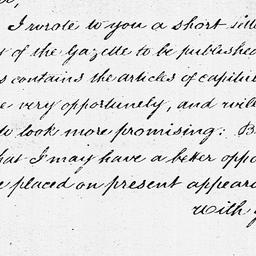 I wrote to you a short
of the Gazette to be published
contains the articles of
very opportunely, and will
to look more promising: B
hat I may have a better oppo
placed on present appeara
With